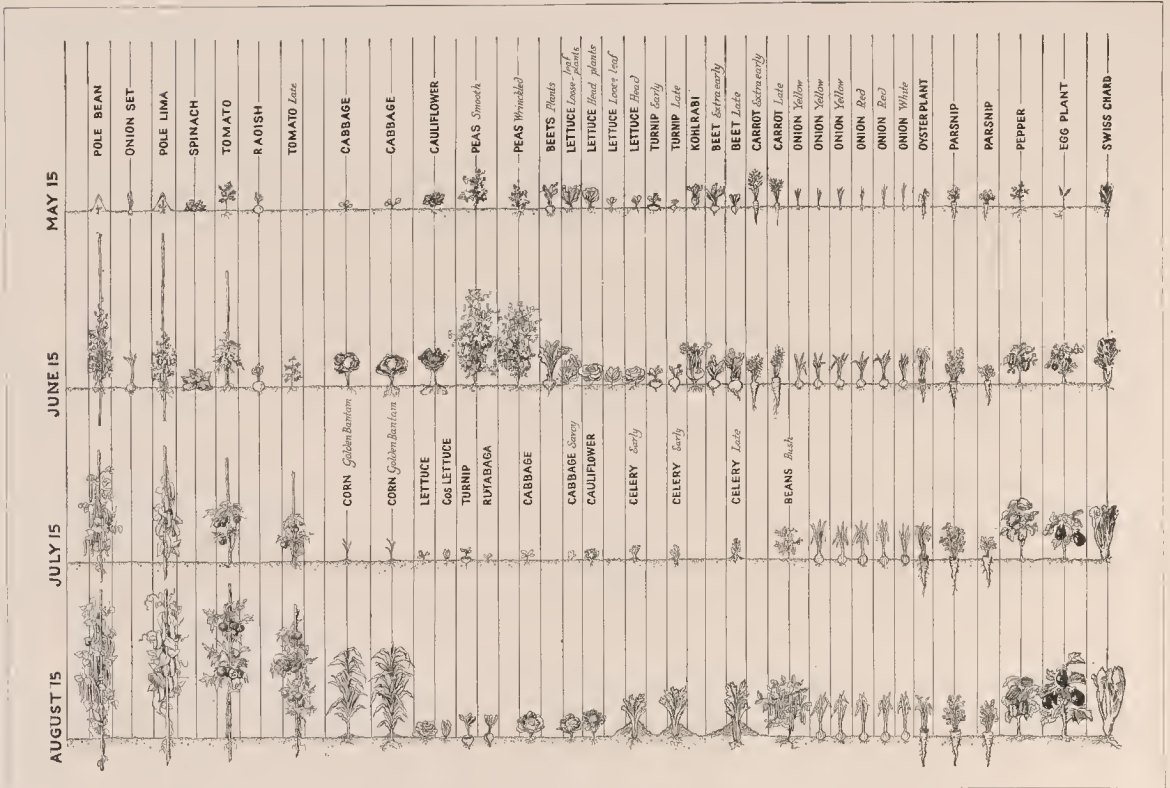 MAY 15
POLE BEAN
ONION SET
POLE LIMA
SPINACH
TOMATO
RADISH
TOMATO Late
CABBAGE
CABBAGE
CAULIFLOWER
PEAS Smooth
PEAS Wrinkled
BEETS Plants
LETTUCE Loose-leaf plants
LETTUCE Head plants
LETTUCE Loose leaf
LETTUCE Head
TURNIP Early
TURNIP Late
KOHLRABI
BEET Extra early
BEET Late
CARROT Extra early
CARROT Late
ONION Yellow
ONION Yellow
ONION Yellow
ONION Red
ONION Red
ONION White
OYSTER PLANT
PARSNIP
PARSNIP
PEPPER
EGG PLANT
SWISS CHARD
JUNE 15
JULY 15
CORN Golden Bantam
CORN Golden Bantam
LETTUCE
COS LETTUCE
TURNIP
RUTABAGA
CABBAGE
CABBAGE Savoy
CAULIFLOWER
CELERY Early
CELERY Early
CELERY Late
BEANS Bush
AUGUST 15